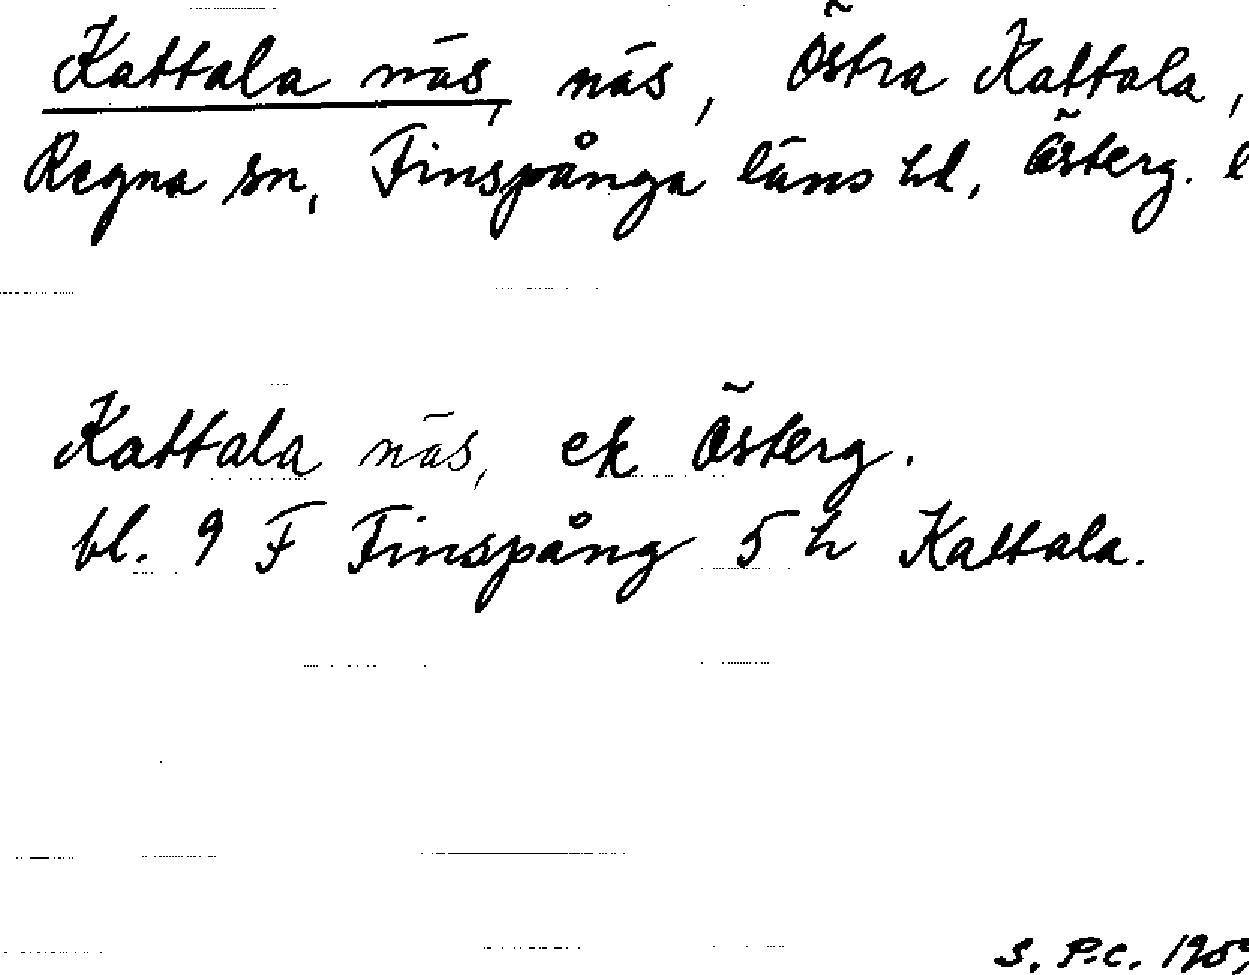 Kattala näs, näs, Östra Kattala,
Regna sn, Finspånga läns hd, Österg. l
Kattala näs, ek Österg.
bl. 9 F Finspång 5 h Kattala.
S. P.C.